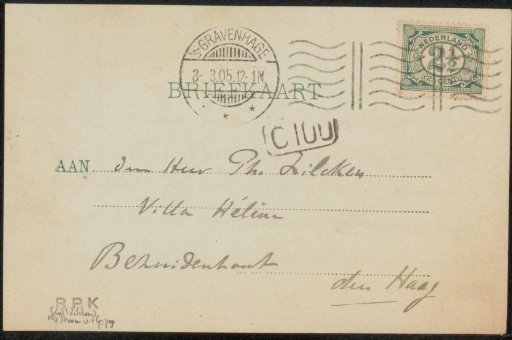 'S-GRAVENHAGE
3- 3.05.12-1N
NEDERLAND
2½
CENT
BRIEFKAART
C100
AAN den Heer Ph. Zilcken
Villa Hélène
Bezuidenhout
den Haag
RPK